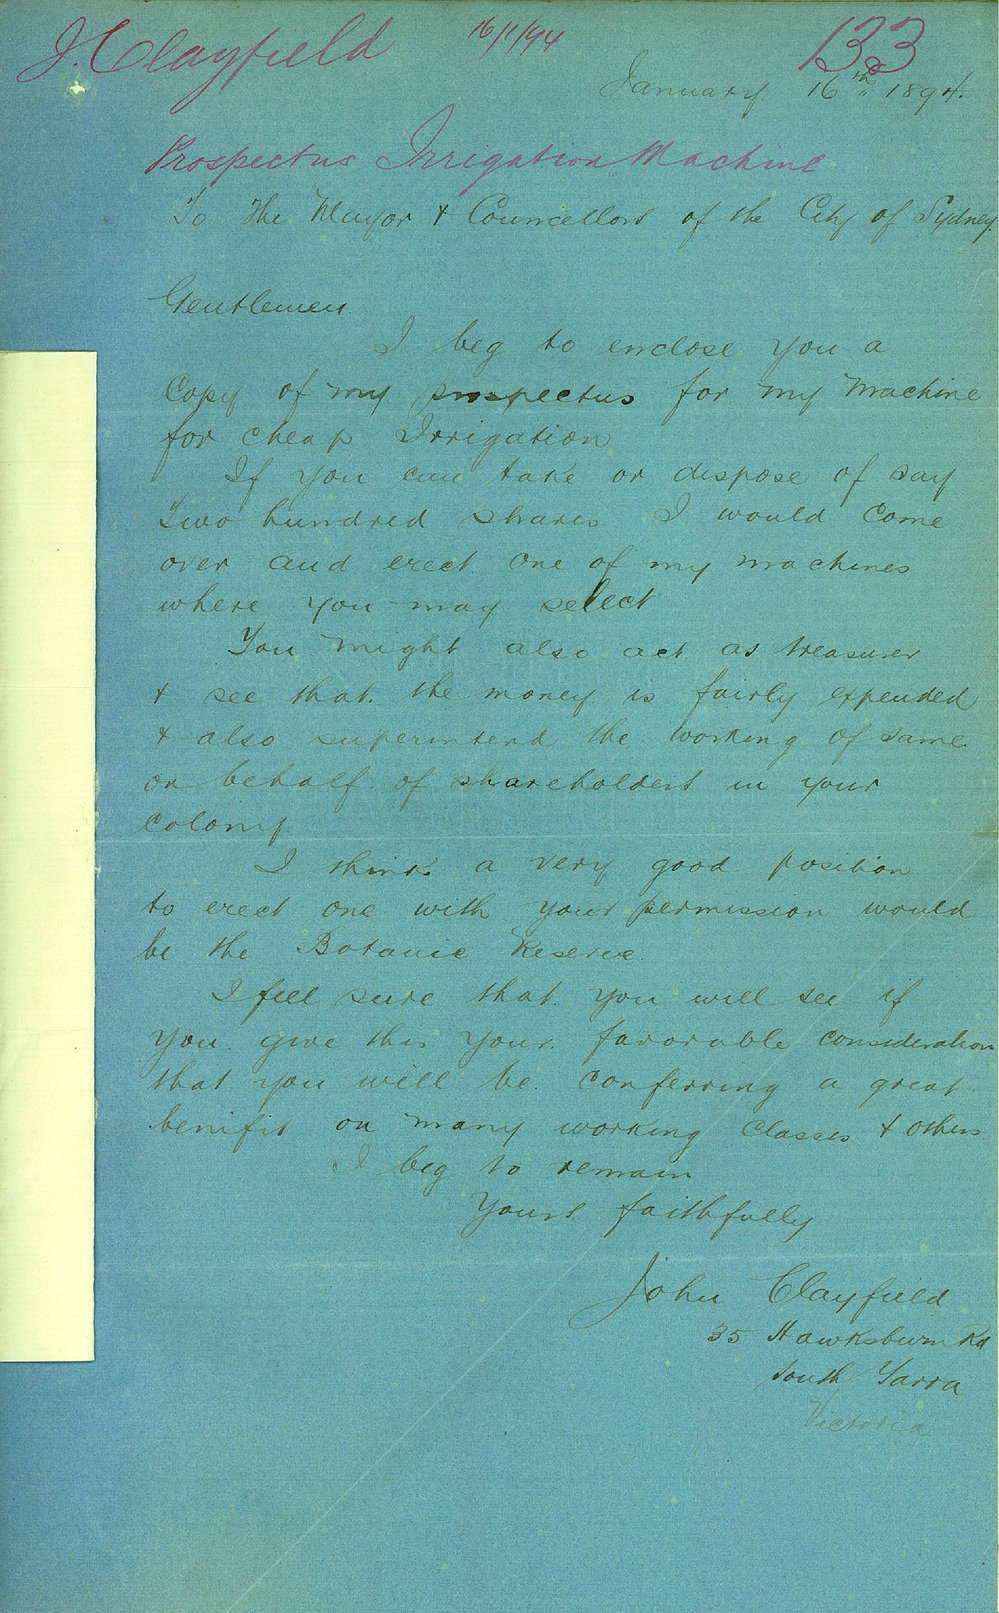 J. Clayfield 16/1/94 133
January 16th 1894.
Prospectus Irrigation Machine
To The Mayor & Councellors of the City of Sydney.
Gentlemen.
I beg to enclose you a
Copy of my prospectus for my Machine
for cheap Irrigation
If you can take or dispose of say
Two hundred shares I would come
over and erect one of my machines
where you may select
You might also act as treasurer
& see that the money is fairly expended
& also superintend the working of same
on behalf of shareholders in your
Colony
I think a very good position
to erect one with your permission would
be the Botanic Reserve.
I feel sure that you will see if
you give this your favorable consideration
that you will be conferring a great
benifit on many working classes & others
I beg to remain
Yours faithfully
John Clayfield
35 Hawksburn Rd
South Yarra
Victoria